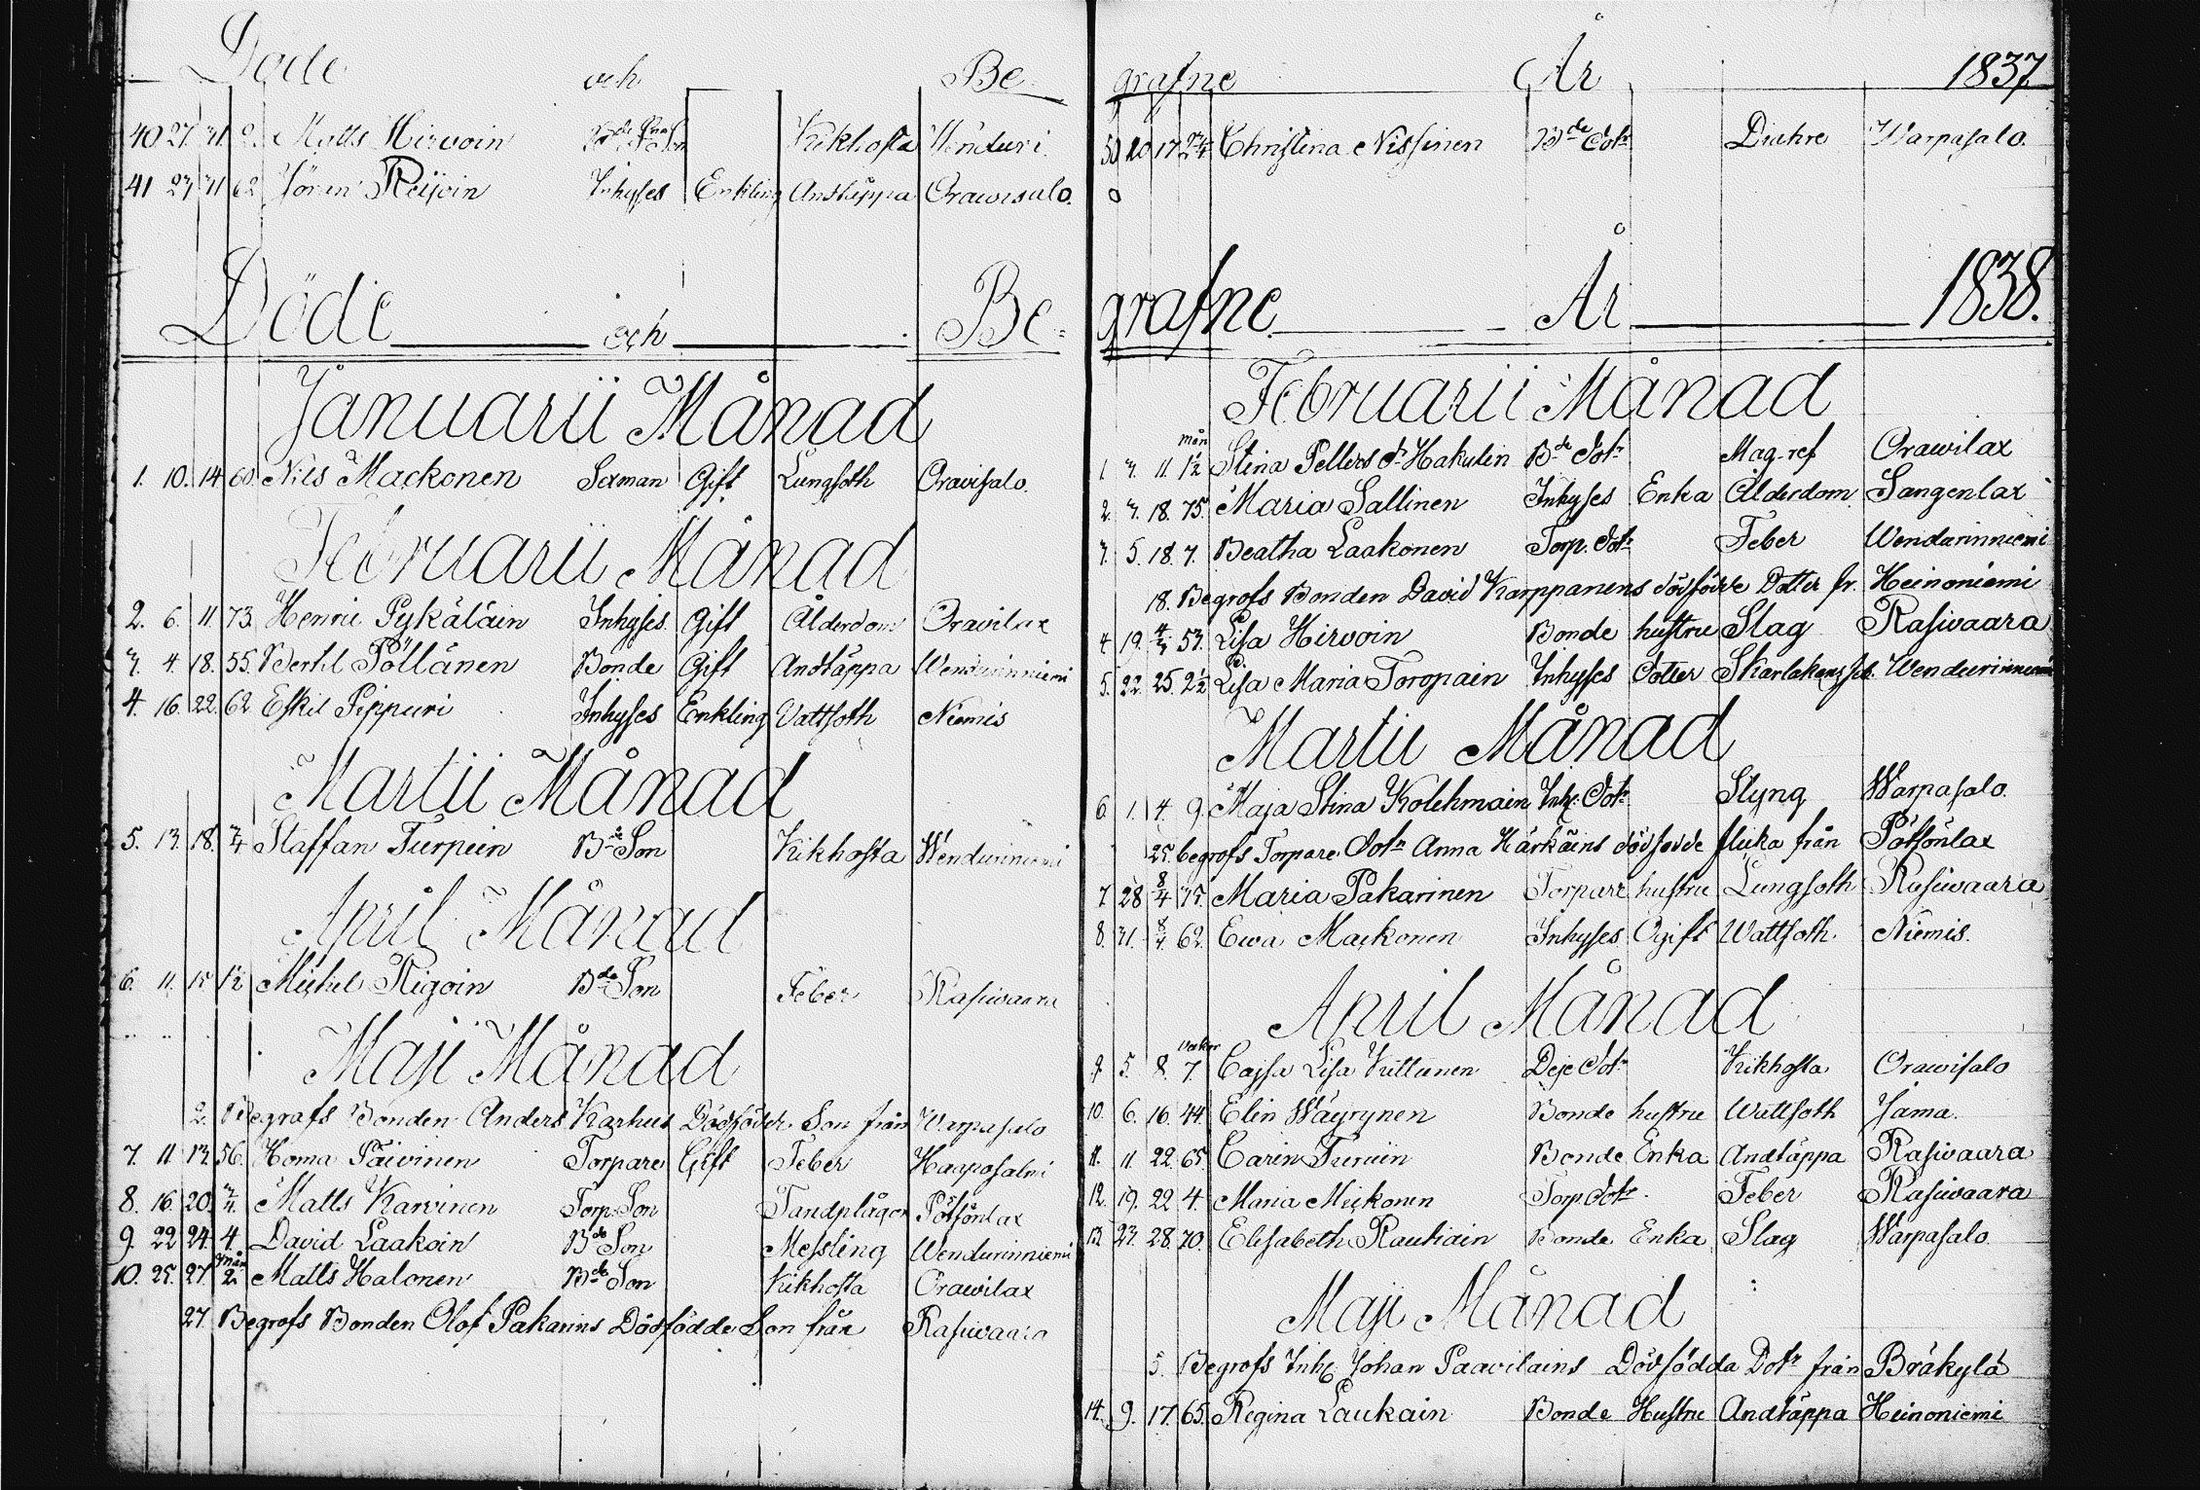 Döde och Be
40 27 31 Matts Hirvoin Kikhosta Wenduri
41 27 31 62 Jöran Reijoin Inhyses Enkling Andtäppa Orawisalo.
Döde och Be=
Januarii Månad
1. 10. 14 60. Nils Mackonen Sexman Gift Lungsoth Oravisalo.
Februarii Månad
2. 6. 11 73. Henric Pykäläin Inhyses Gift Ålderdom Oravilax
3. 4 18. 55. Bertil Pöllänen Bonde Gift Andtäppa Wendurinniemi
4. 16. 22. 62 Eskil Pippuri Inhyses Enkling Vattsoth Niemis
Martii Månad
5. 13. 18. 3/4 Staffan Turpein Bde Son Kikhosta Wendurinniemi
April Månad
6. 11. 15 1/2 Michel Rigoin Bde Son Feber Rasiwaara
Maji Månad
2. Begrafs Bonden Anders Karhus Dödföder Son från Warpasalo
7. 11 13 56. Homa Päivinen Torpare Gift Feber Haaposalmi
8. 16. 20. 3/4 Matts Karvinen Torp. Son Tandplågor Pötsönlax
9. 22 24. 4. David Laakoin Bde Son Messling Wendurinniemi
10. 25. 27 2. Matts Halonen Bde Son Kikhosta Orawilax
27 Begrofs Bonden Olof Pakarins Dödfödde Son från Rasiwaara
grafne År 1837
50 20 17 3/4 Christina Nissinen Bde Dotr Diahre Warpasalo.
0
grafne År 1838.
Februarii Månad
mån
1 3. 11. 1 1/2 Stina Pellers dr Hakulin Bde Dotr Mag-ref Orawilax
2. 3. 18. 75. Maria Sallinen Inhyses Enka Ålderdom Sangenlax
3. 5. 18. 7. Beatha Laakonen Torp. Dotr Feber Wendurinniemi
18. Begrofs Bonden David Karppanens dödfödde Dotter fr. Heinoniemi
4 19. 4/3 53. Lisa Hirvoin Bonde hustru Slag Rasiwaara
5. 22. 25. 2 1/2 Lisa Maria Toropain Inhyses Dotter Skarlakansfeb. Wendurinniemi
Martii Månad
6 1. 4. 9. Maja Stina Kolehmain Inh: Dotr Styng Warpasalo.
25. begrofs Torpare Dotn Anna Härkäins dödfödde flicka från Pötsönlax
7 28 8/4 75. Maria Pakarinen Torpare hustru Lungsoth Rasiwaara
8. 31. 8/4 62. Ewa Mackonen Inhyses Ogift Wattsoth. Niemis.
April Månad
veckor
9. 5. 8. 7. Cajsa Lisa Kuttunen Deje Dotr Kikhosta Orawisalo
10. 6. 16. 44. Elin Wäyrynen Bonde hustru Wattsoth Jama.
11. 11 22. 65. Carin Turuin Bonde Enka Andtäppa Rasiwaara
12. 19. 22 4. Maria Mickonen Torp Dotr. Feber Rasiwaara
13. 23. 28. 70. Elisabeth Rautiain Bonde Enka Slag Warpasalo
Maji Månad
5. Begrofs Inh: Johan Paavilains Dödfödda Dotr från Bräkylä
14. 9. 17. 65. Regina Laukain Bonde Hustru Andtäppa Heinoniemi